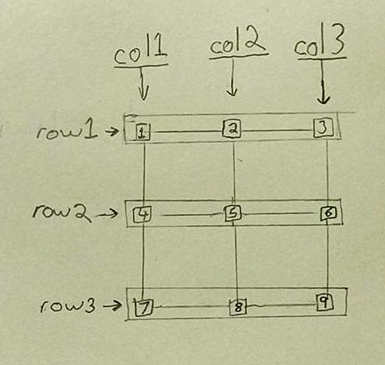 col1 col2 col3
row1 1 2 3
row2 4 5 6
row3 7 8 9